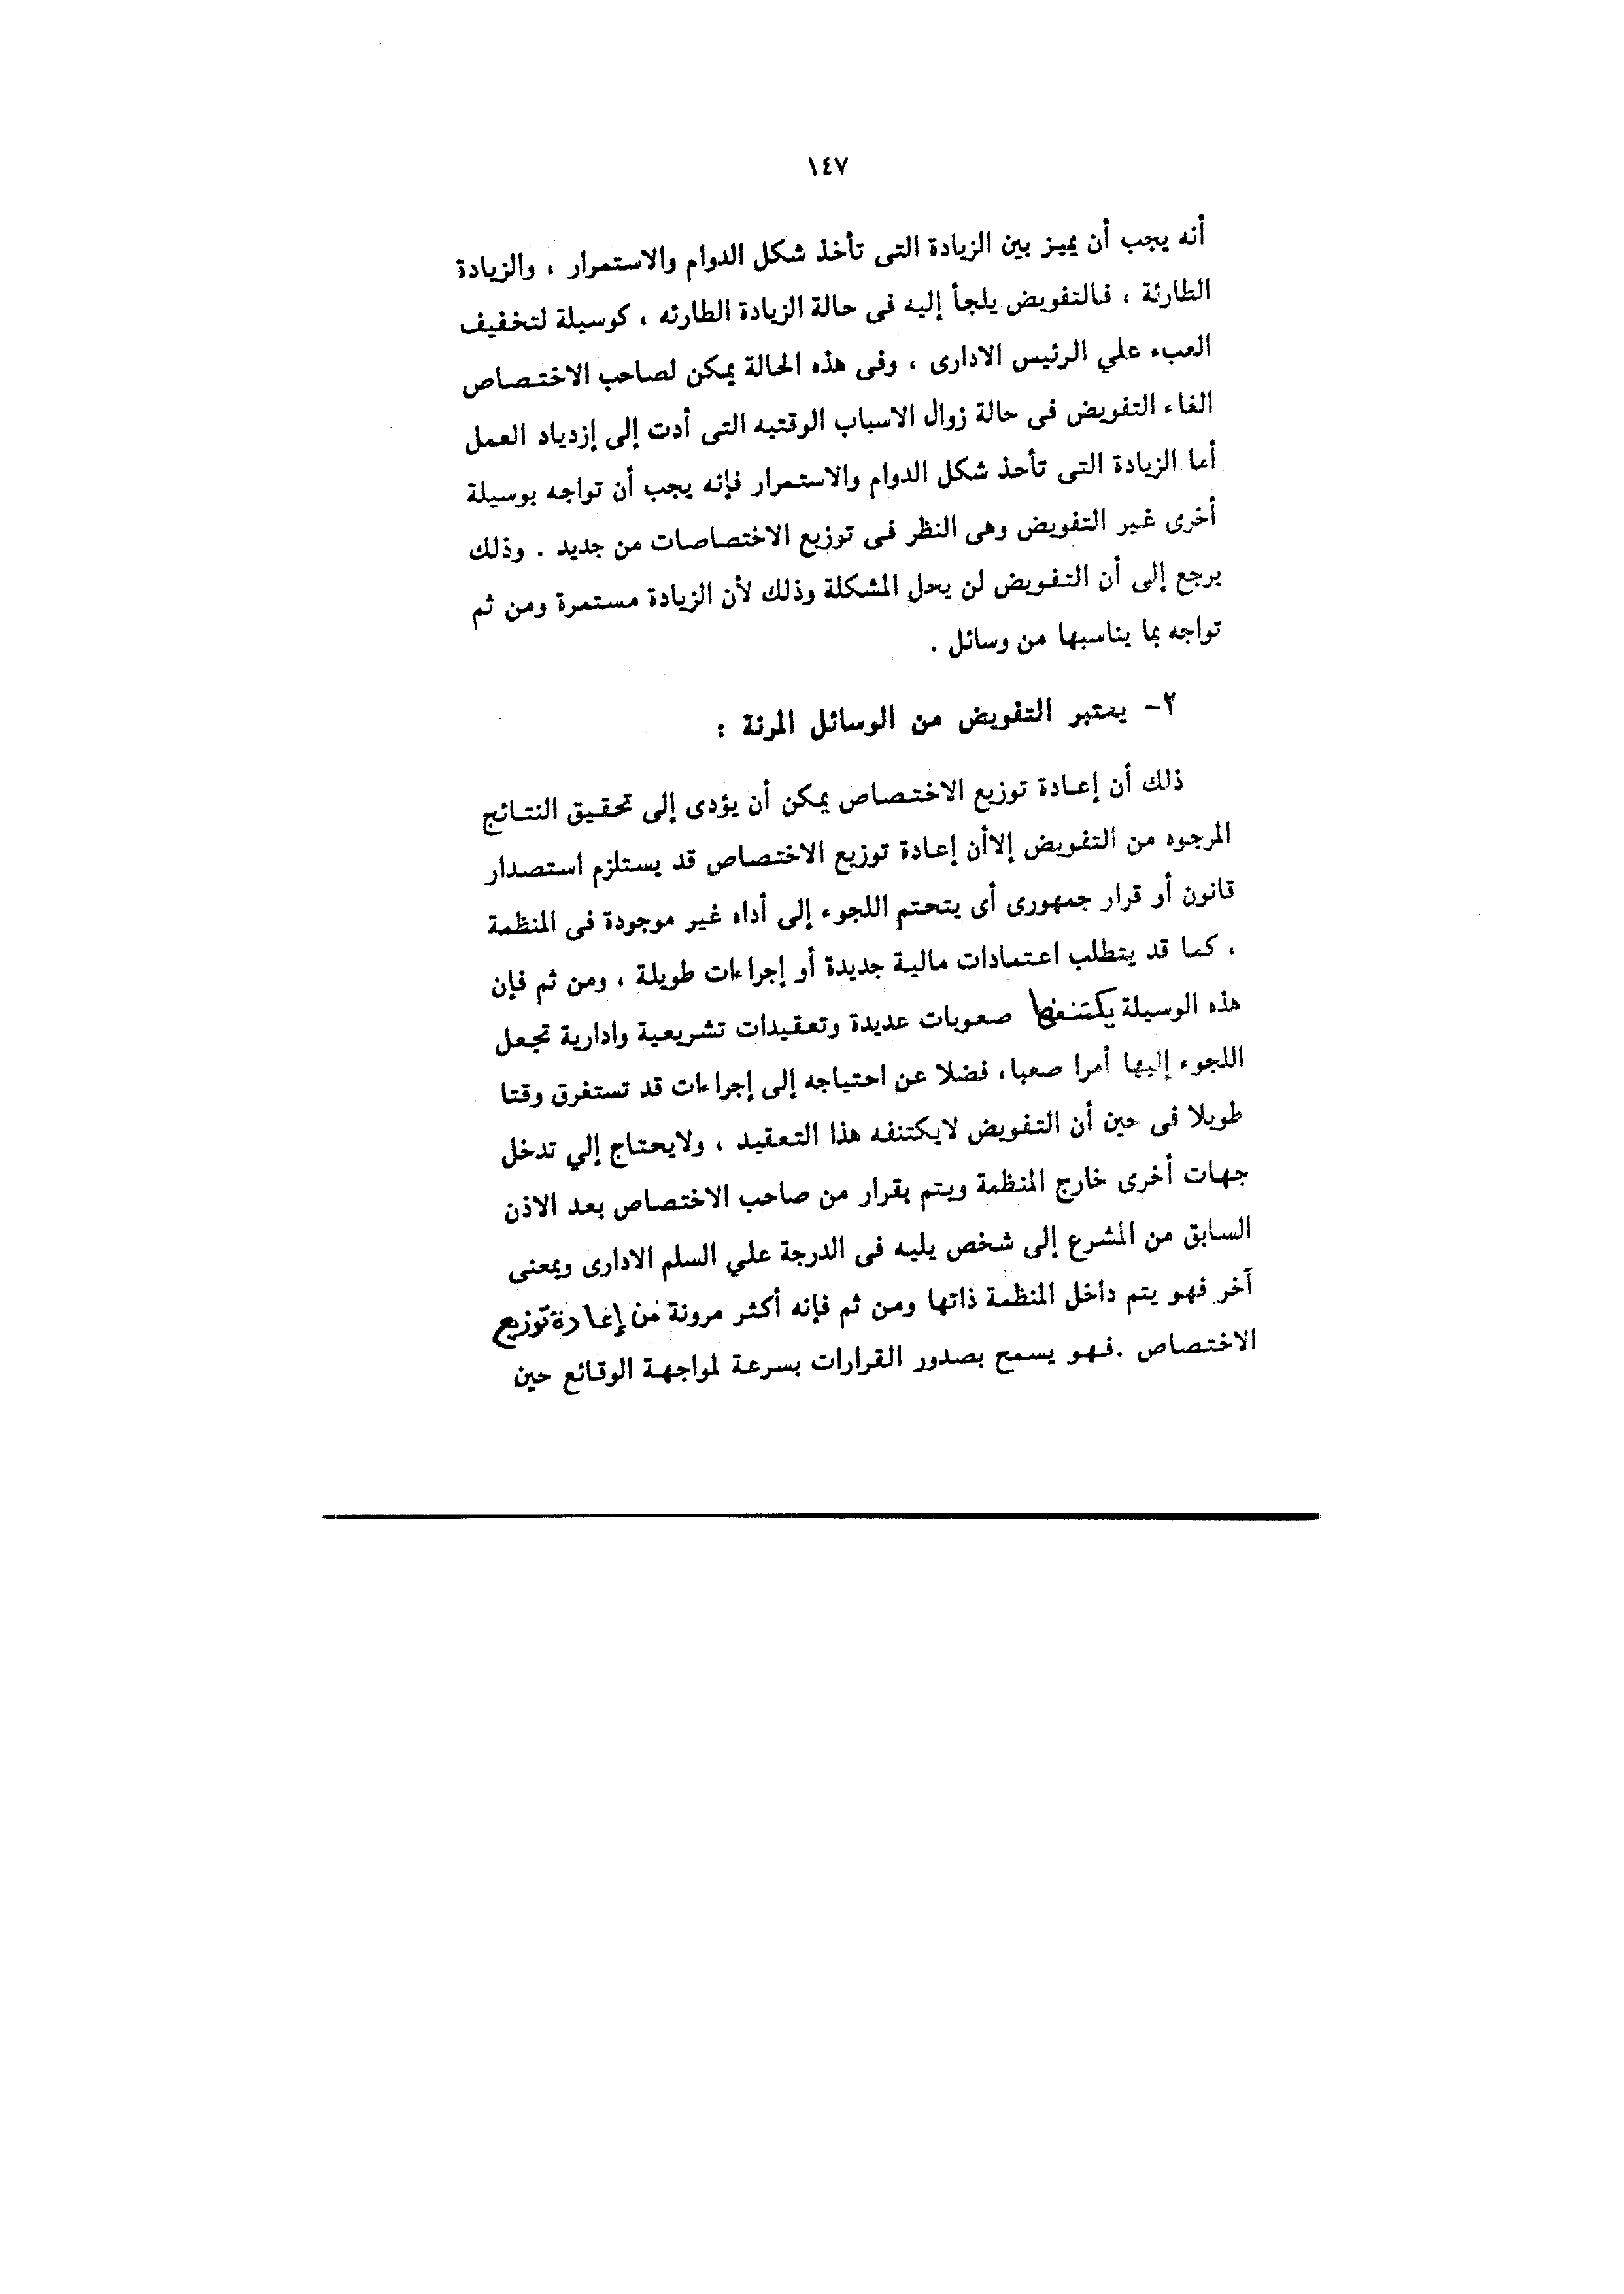 ١٤٧
أنه يجب أن يميز بين الزيادة التى تأخذ شكل الدوام والاستمرار ، والزيادة
الطارئة ، فالتفويض يلجأ إليه فى حالة الزيادة الطارئه ، كوسيلة لتخفيف
العبء علي الرئيس الادارى ، وفى هذه الحالة يمكن لصاحب الاختصاص
الغاء التفويض فى حالة زوال الاسباب الوقتيه التى أدت إلى إزدياد العمل
أما الزيادة التى تأخذ شكل الدوام والاستمرار فإنه يجب أن تواجه بوسيلة
أخرى غير التفويض وهى النظر فى توزيع الاختصاصات من جديد . وذلك
يرجع إلى أن التفويض لن يحل المشكلة وذلك لأن الزيادة مستمرة ومن ثم
تواجه بما يناسبها من وسائل .
٢- يعتبر التفويض من الوسائل المرنة :
ذلك أن إعادة توزيع الاختصاص يمكن أن يؤدى إلى تحقيق النتائج
المرجوه من التفويض إلاأن إعادة توزيع الاختصاص قد يستلزم استصدار
قانون أو قرار جمهورى أى يتحتم اللجوء إلى أداه غير موجودة فى المنظمة
، كما قد يتطلب اعتمادات مالية جديدة أو إجراءات طويلة ، ومن ثم فإن
هذه الوسيلة يكتنفها صعوبات عديدة وتعقيدات تشريعية وادارية تجعل
اللجوء إليها أمرا صعبا، فضلا عن احتياجه إلى إجراءات قد تستغرق وقتا
طويلا فى حين أن التفويض لايكتنفه هذا التعقيد ، ولايحتاج إلي تدخل
جهات أخرى خارج المنظمة ويتم بقرار من صاحب الاختصاص بعد الاذن
السابق من المشرع إلى شخص يليه فى الدرجة علي السلم الادارى وبمعنى
آخر فهو يتم داخل المنظمة ذاتها ومن ثم فإنه أكثر مرونة من إعادة توزيع
الاختصاص .فهو يسمح بصدور القرارات بسرعة لمواجهة الوقائع حين